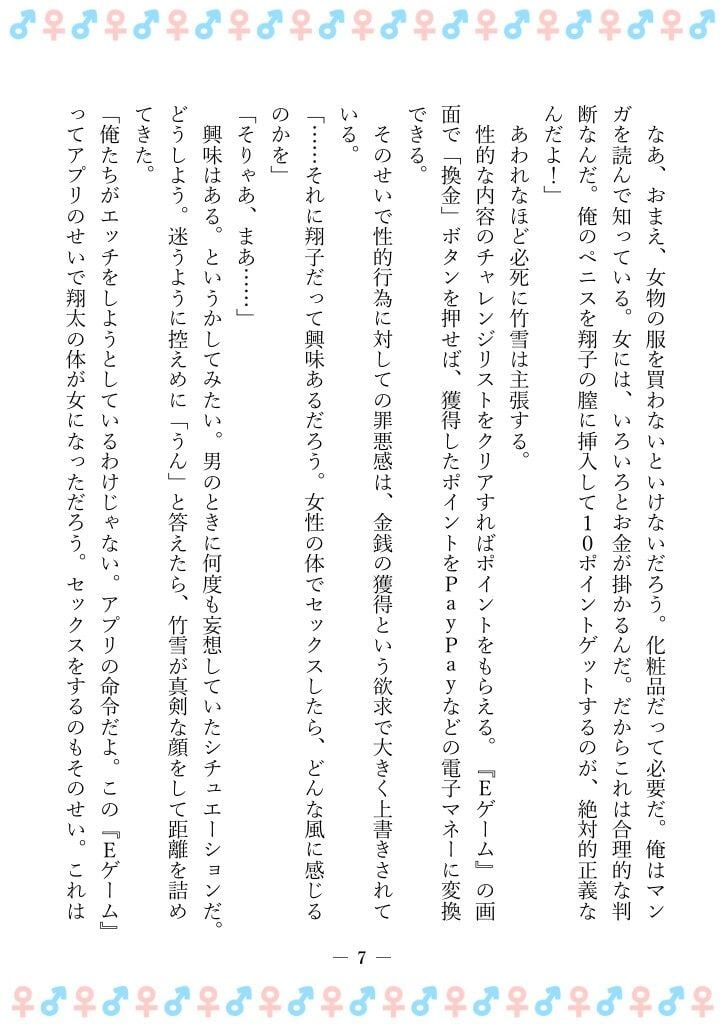 なあ、おまえ、女物の服を買わないといけないだろう。化粧品だって必要だ。俺はマン
ガを読んで知っている。女には、いろいろとお金が掛かるんだ。だからこれは合理的な判
断なんだ。俺のペニスを翔子の膣に挿入して10ポイントゲットするのが、絶対的正義な
んだよ！」
あわれなほど必死に竹雪は主張する。
性的な内容のチャレンジリストをクリアすればポイントをもらえる。『Eゲーム』の画
面で「換金」ボタンを押せば、獲得したポイントをPayPayなどの電子マネーに変換
できる。
そのせいで性的行為に対しての罪悪感は、金銭の獲得という欲求で大きく上書きされて
いる。
「……それに翔子だって興味あるだろう。女性の体でセックスしたら、どんな風に感じる
のかを」
「そりゃあ、まあ……」
興味はある。というかしてみたい。男のときに何度も妄想していたシチュエーションだ。
どうしよう。迷うように控えめに「うん」と答えたら、竹雪が真剣な顔をして距離を詰め
てきた。
「俺たちがエッチをしようとしているわけじゃない。アプリの命令だよ。この『Eゲーム』
ってアプリのせいで翔太の体が女になっただろう。セックスをするのもそのせい。これは
― 7 ―